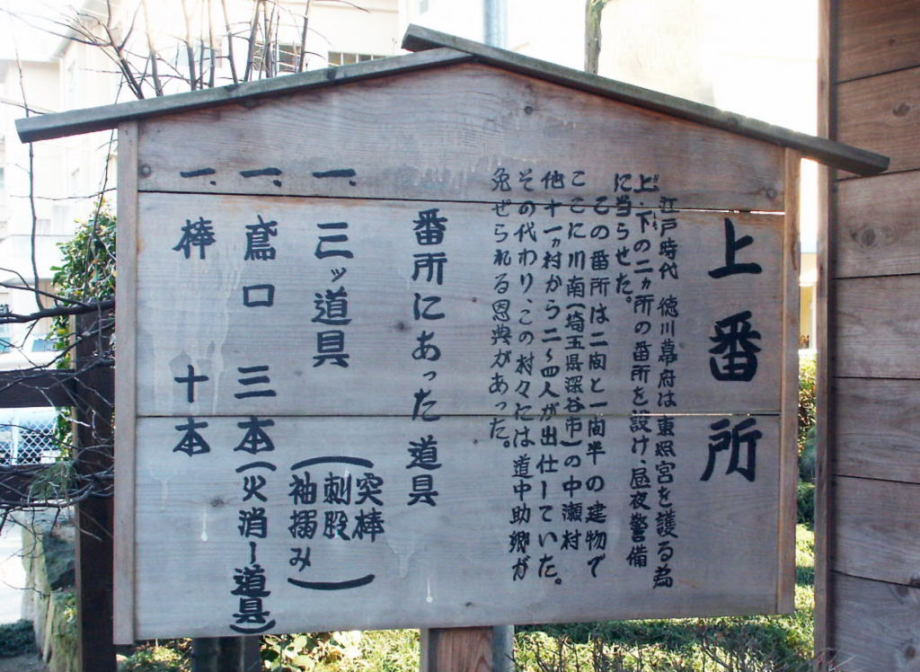 上番所
江戸時代 徳川幕府は東照宮を護る為
上・下の二ヵ所の番所を設け昼夜警備
に当らせた。
この番所は二間と一間半の建物で
ここに川南(埼玉県深谷市)の中瀬村
他十一ヵ村から二〜四人が出仕していた。
その代わり、この村々には道中助郷が
免ぜられる恩典があった。
番所にあった道具
一、三ッ道具(突棒
刺股
袖搦み)
一、鳶口 三本(火消し道具)
一、棒 十本